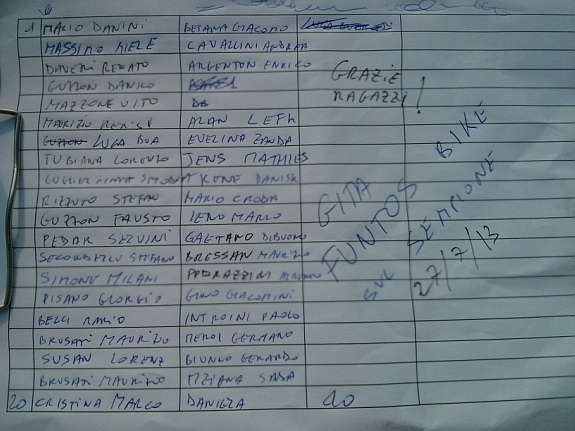 1 MARIO DANINI BESANA GIACOMO
MASSIMO MIELE CAVALLINI ANDREA
DAVERI RENATO ARGENTON ENRICO
GUZZON DANILO
MAZZONE VITO
MAURIZIO ALAN LEFH
LUCA BUA EVELINA ZANDA
TUBIANA LORENZO JENS MATHIES
KONE DANISK
RIZZUTO STEFAN MARIO CRODA
GUZZON FAUSTO IENO MARCO
PEDAR SERVINI GAETANO DIBUONO
STEFANO BRESSAN MAURIZIO
SIMONE MILANI PEDRAZZINI
PISANO GIORGIO GINO GIACOMINI
BELLI MARIO INTROINI PAOLO
BRUSATI MAURIZIO MEROI GERMANO
SUSAN LORENZ BIONCO GERARDO
BRUSATI MAURIZIO TIZIANA SADA
20 CRISTINA MARCO DANIELA 40
GRAZIE
RAGAZZI!
GITA
FUNTOS BIKE
SUL SEMPIONE
27/7/13